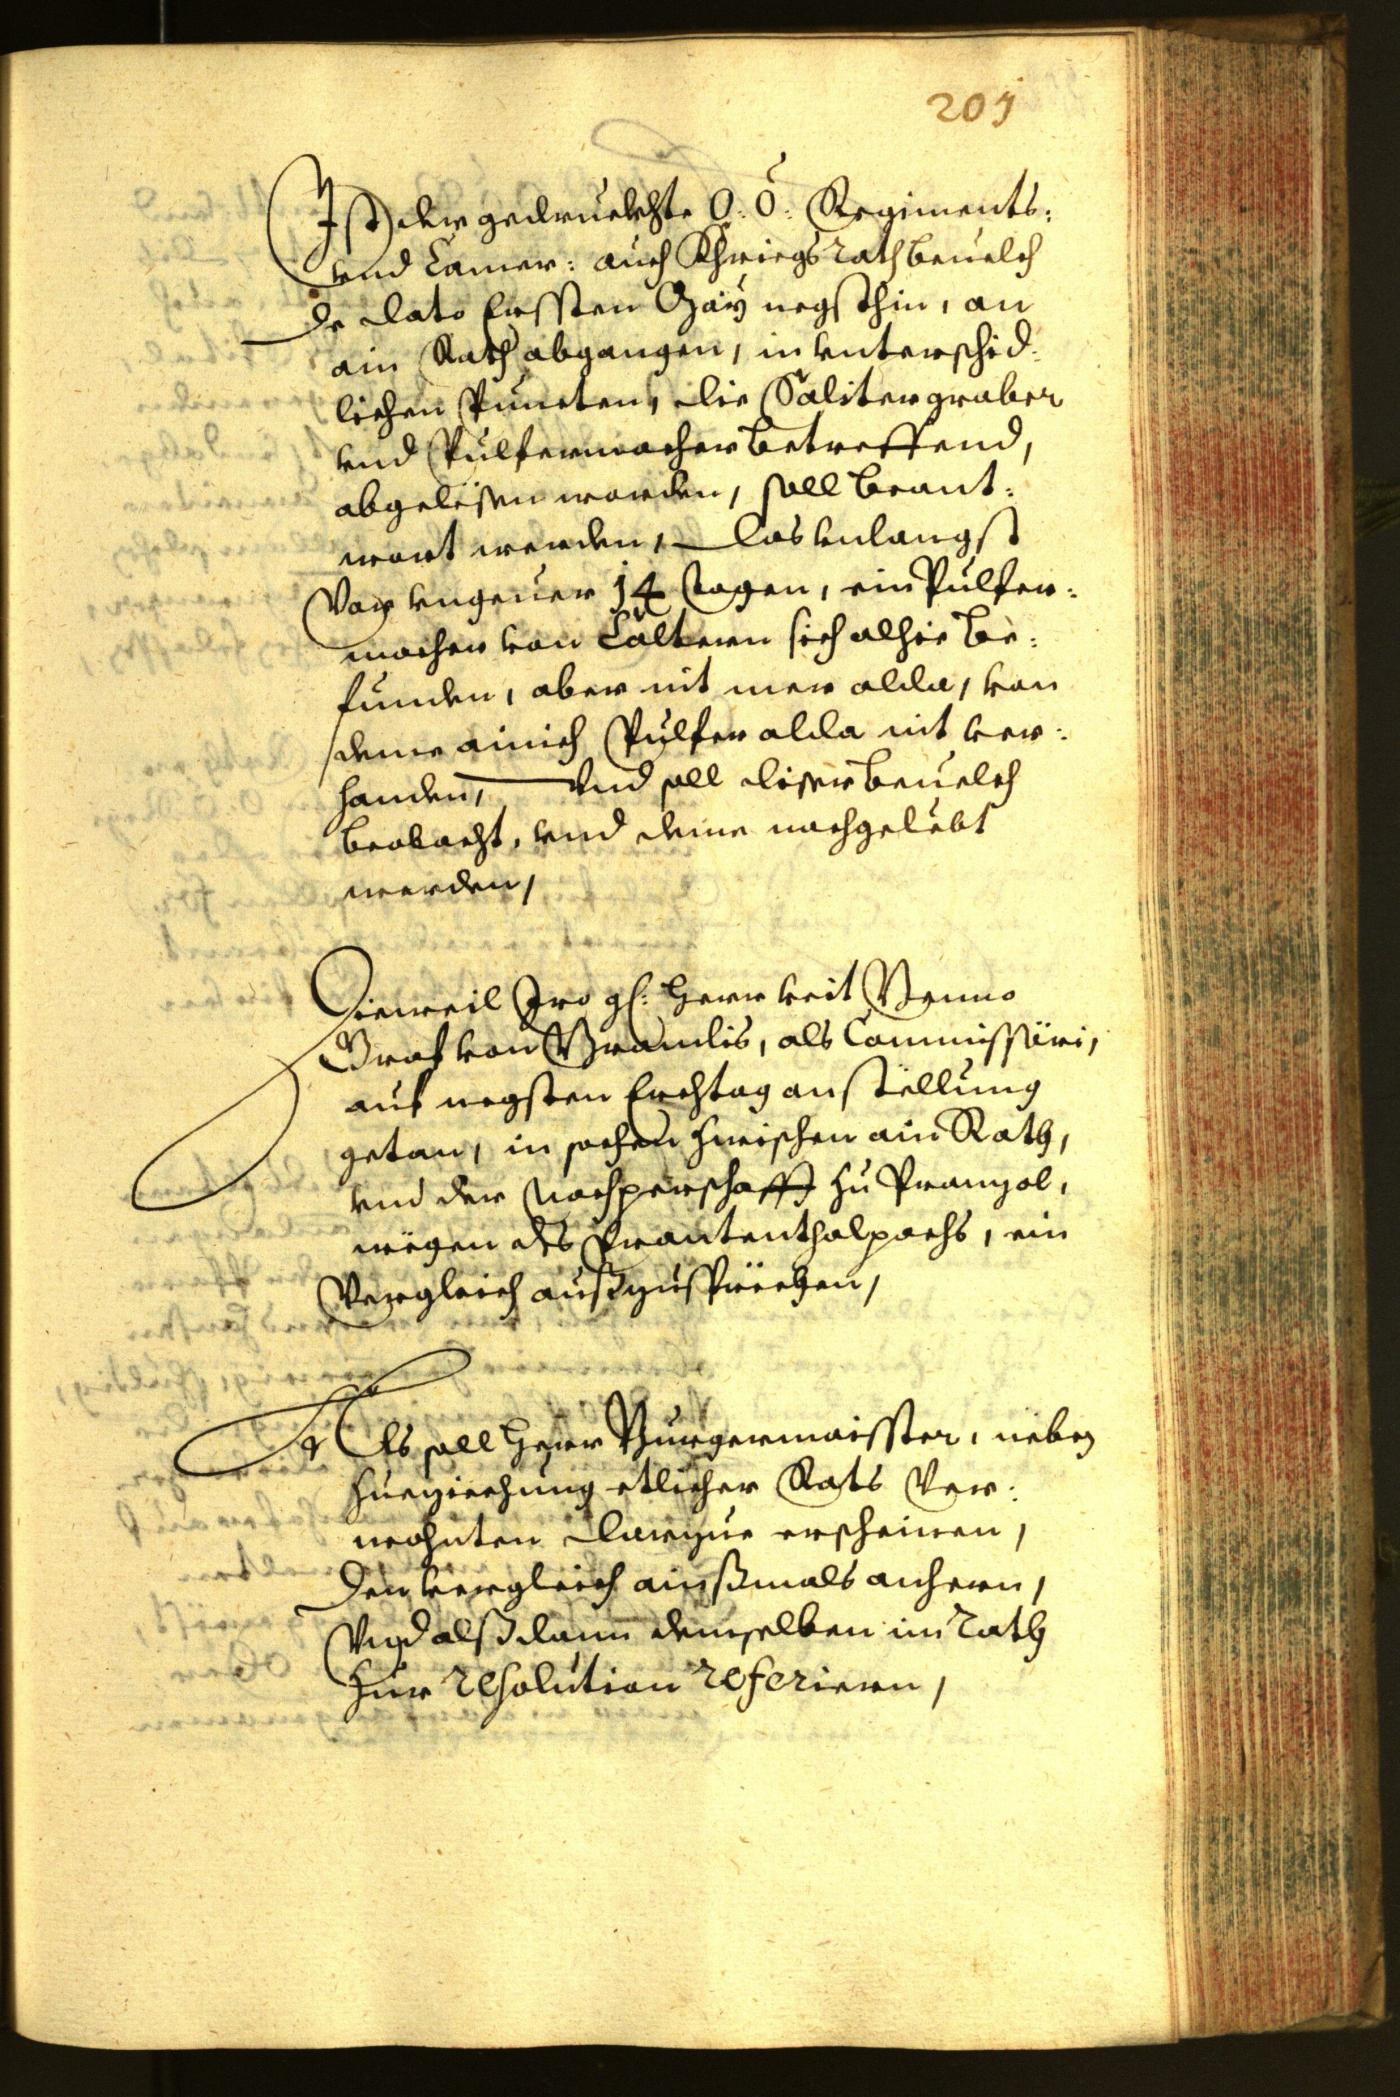 205
Ist der gedruckhte O: Ö: Regiments:
vnd Camer: auch Khriegs Rath beuelch
de dato Ersten May negsthin, an
ain Rath abgangen, in vnterschid:
lichen Puncten, die Salitergraber
vnd Pulfermacher betreffend,
abgelesen worden, soll beant:
wort werden, das vnlangst
Vor vngeuer 14 tagen, ein Pulfer:
macher von Caltern sich alhie be:
funden, aber nit mer alda, von
deme ainich Pulfer alda nit ver:
handen, Vnd soll diser beuelch
beobacht, vnd deme nachgelebt
werden,
Dieweil Iro gl: Herr Veit Benno
Graf von Brandis, als Commissäri,
auf negsten Erchtag anstellung
getan, in sachen zwischen ain Rath,
vnd der Nachperschafft zu Pranzol,
wegen des Prantenthalpachs, ein
Vergleich außzusprechen,
Als soll Herr Burgermaister, neben
zueziechung etlicher Rats Ver:
wohnten darzue erscheinen,
den vergleich ainßmals anhern,
Vnd alßdann demselben im Rath
zur resolution referiern,